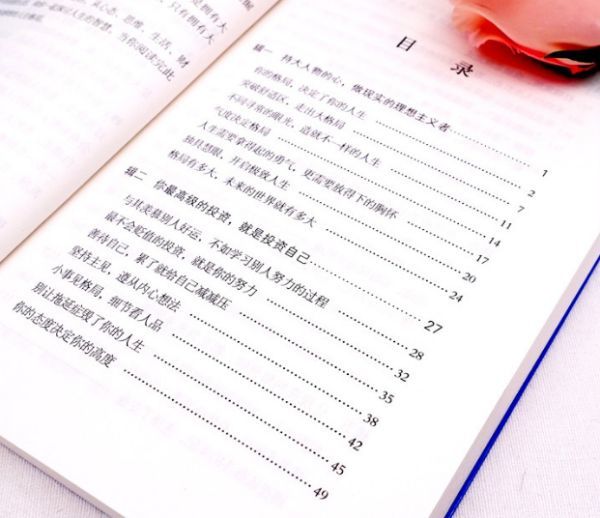 定是拥有大
，只有拥有大
心态、思维、生活、财
人生的智慧。当你阅读完此
目 录
辑一 持大人物的心，做现实的理想主义者 …… 1
你的格局，决定了你的人生 …… 2
突破舒适区，走出大格局 …… 7
不同寻常的眼光，造就不一样的人生 …… 11
气度决定格局 …… 14
人生需要拿得起的勇气，更需要放得下的胸怀 …… 17
独具慧眼，开启极致人生 …… 20
格局有多大，未来的世界就有多大 …… 24
辑二 你最高级的投资，就是投资自己 …… 27
与其羡慕别人好运，不如学习别人努力的过程 …… 28
最不会贬值的投资，就是你的努力 …… 32
善待自己，累了就给自己减减压 …… 35
坚持主见，遵从内心想法 …… 38
小事见格局，细节看人品 …… 42
别让拖延症毁了你的人生 …… 45
你的态度决定你的高度 …… 49